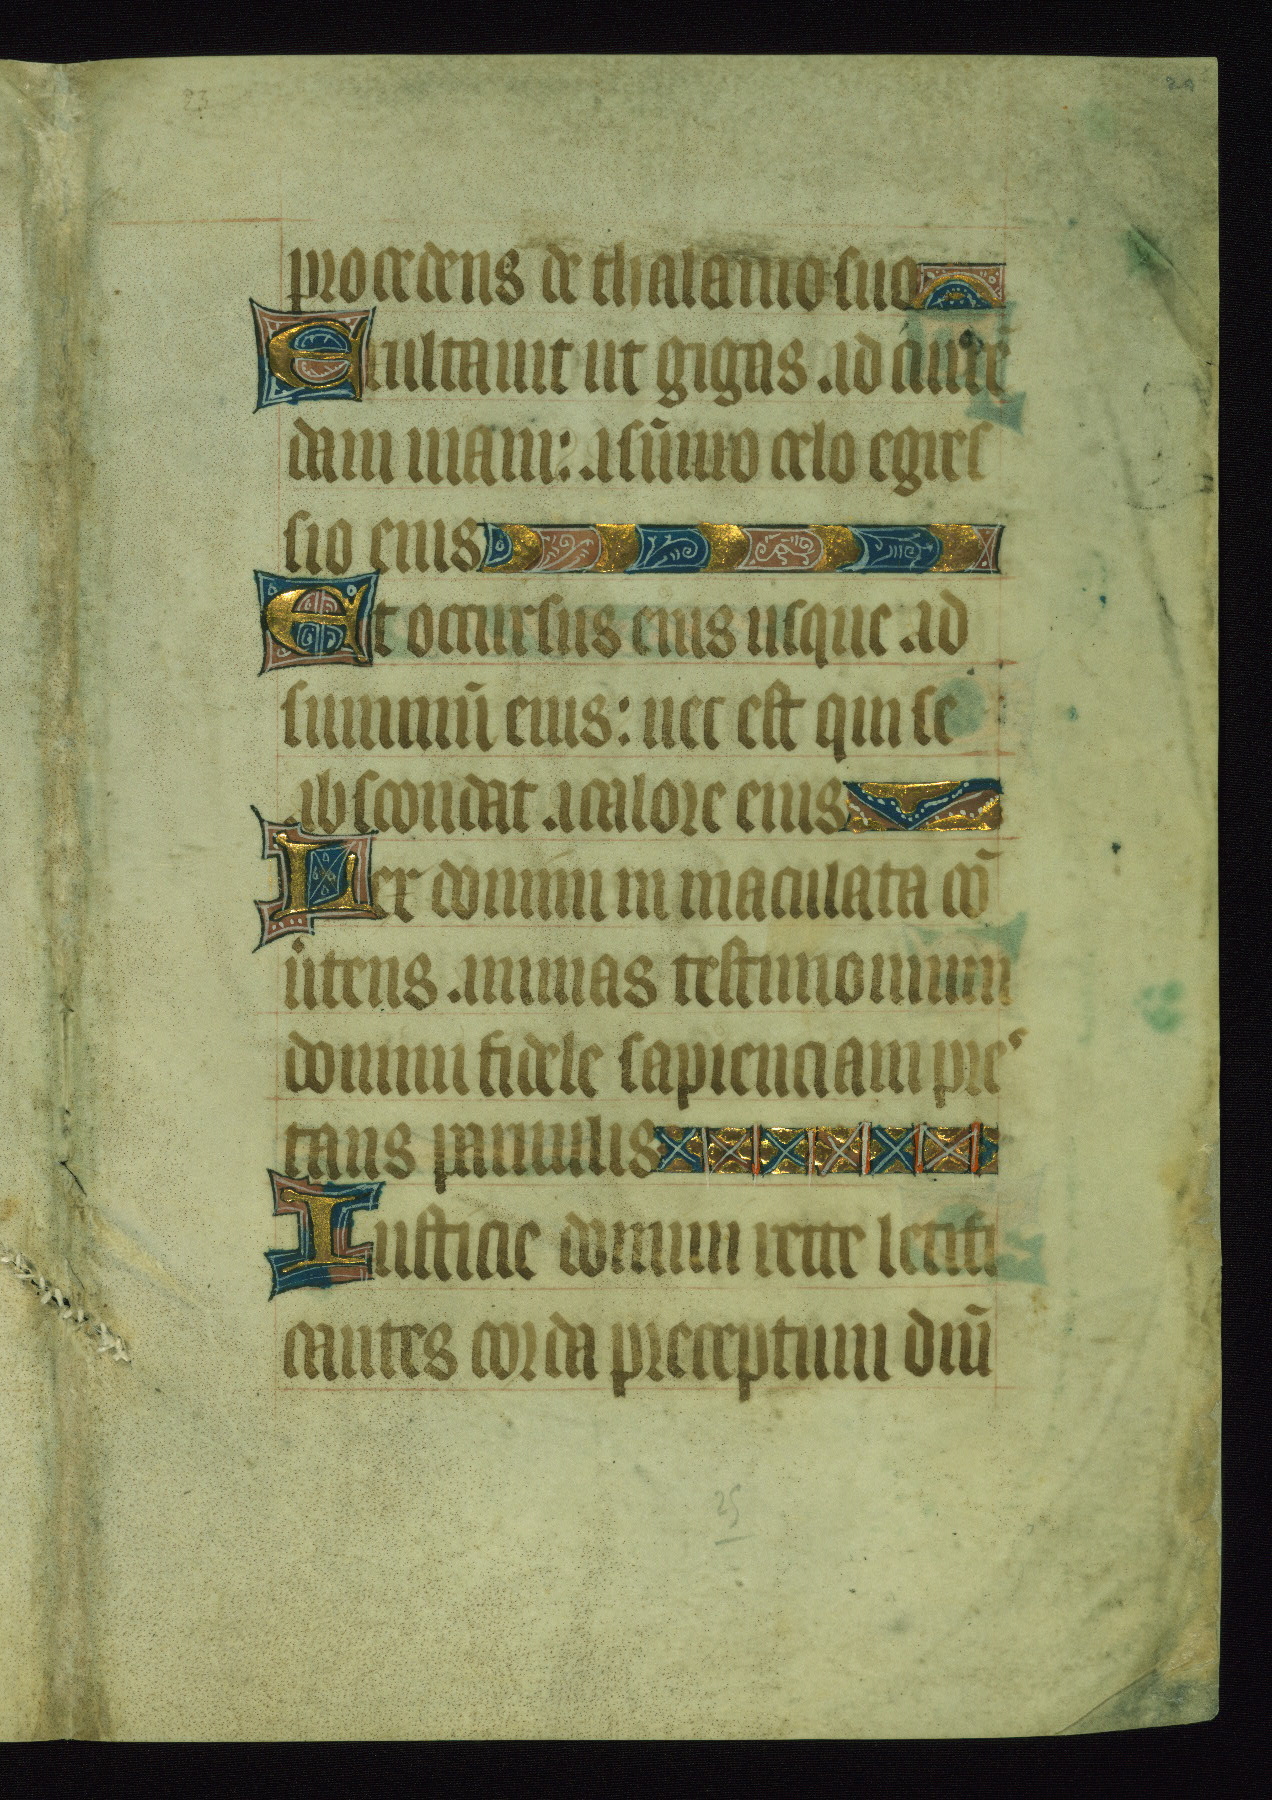 23
procedens de thalamo suo
Exultauit ut gigas ad curre
dam uiam: a sūmo celo egres
sio eius
Et occursus eius usque ad
summū eius: nec est qui se
abscondat a calore eius
Lex domini in maculata cō
uitens animas testimonium
domini fidele sapienciam pres
tans paruulis
Iusticie domini recte letifi
cantes corda preceptum dnī
25